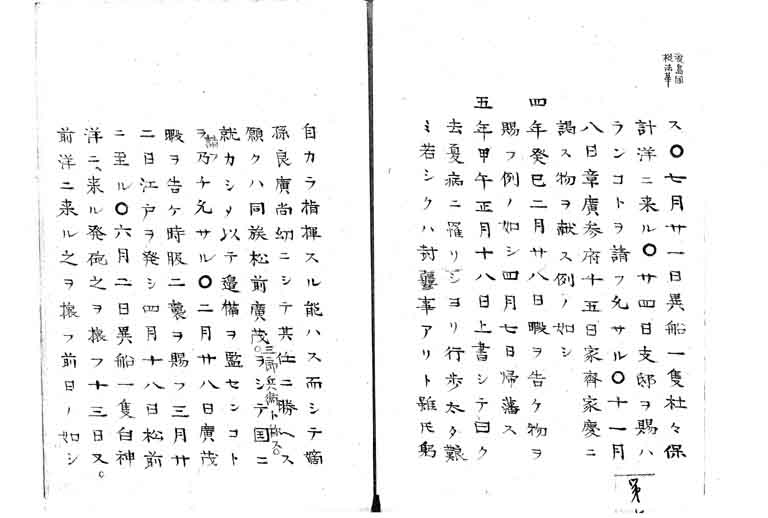 渡島国
椴法華
ス〇七月廿一日異船一隻杜々保
計洋ニ来ル〇廿四日支邸ヲ賜ハ
ランコトヲ請フ允サル〇十一月
八日章廣参府十五日家齊家慶ニ
謁ス物ヲ献ス例ノ如シ
四年癸巳二月廿八日暇ヲ告ケ物ヲ
賜フ例ノ如シ四月七日帰藩ス
五年甲午正月十八日上書シテ曰ク
去夏病ニ罹リシヨリ行歩太タ艱
ミ若シクハ封彊事アリト雖氏躬
第
自カラ指揮スル能ハス而シテ嫡
孫良廣尚幼ニシテ其任ニ勝ヘス
願クハ同族松前廣茂。ヲシテ国ニ
三郎兵衛ト称ス。
就カシメ以テ邊備ヲ監センコト
ヲ請乃チ允サル〇二月廿八日廣茂
暇ヲ告ケ時服二襲ヲ賜フ三月廿
二日江戸ヲ発シ四月十八日松前
ニ至ル〇六月二日異船一隻白神
洋ニ来ル発砲之ヲ攘フ十三日又
前洋ニ来ル之ヲ攘フ前日ノ如シ